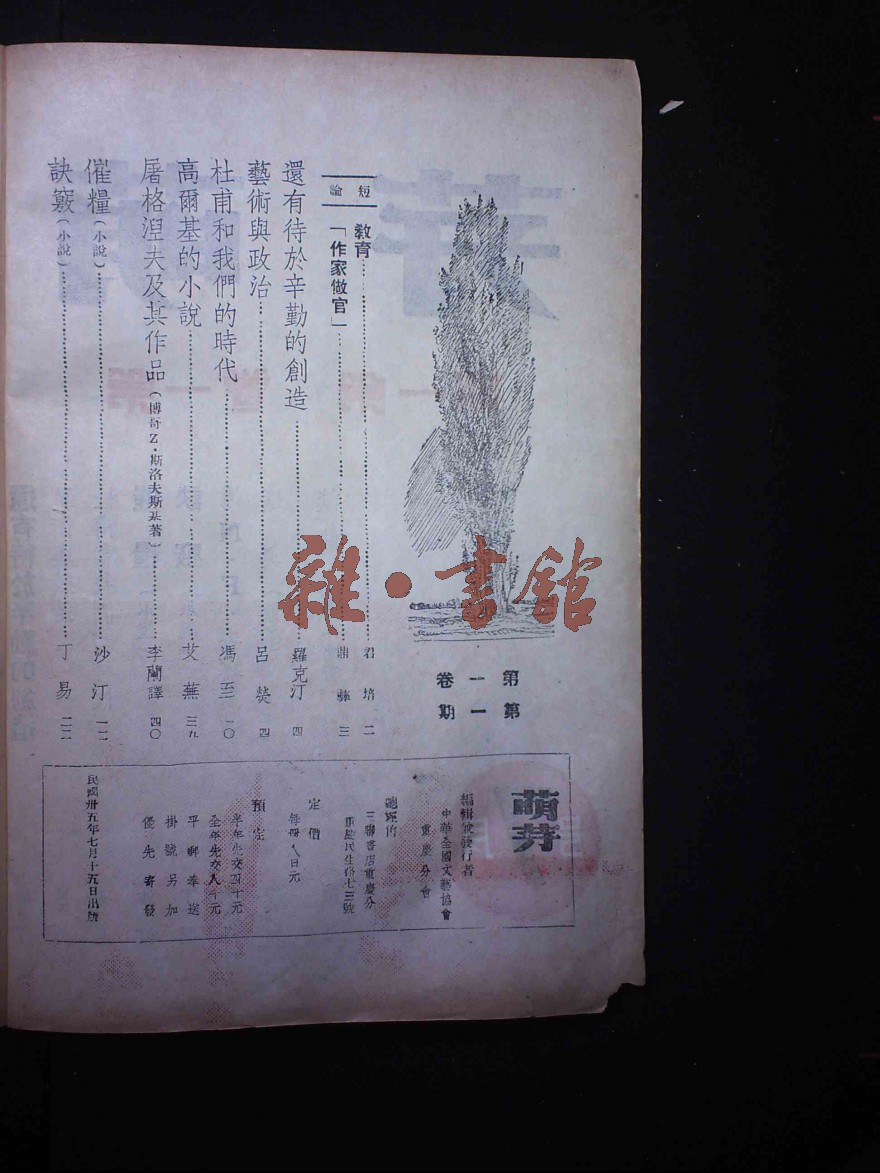 第一卷
第一期
短論
教育 君培 二
「作家做官」 鼎彝 三
還有待於辛勤的創造 羅克汀 四
藝術與政治 呂熒 四
杜甫和我們的時代 馮至 一〇
高爾基的小說 艾蕪 三九
屠格涅夫及其作品（博奇Z·斯洛夫斯基著） 李蘭譯 四〇
催糧（小說） 沙汀 一二
訣竅（小說） 丁易 二二
雜·書館
萌芽
編輯兼發行者
中華全國文藝協會
重慶分會
總經售
三聯書店重慶分
重慶民生路七三號
定價
每冊八百元
預定
半年先交四千元
全年先交八千元
平郵奉送
掛號另加
優先寄發
民國卅五年七月十五日出版